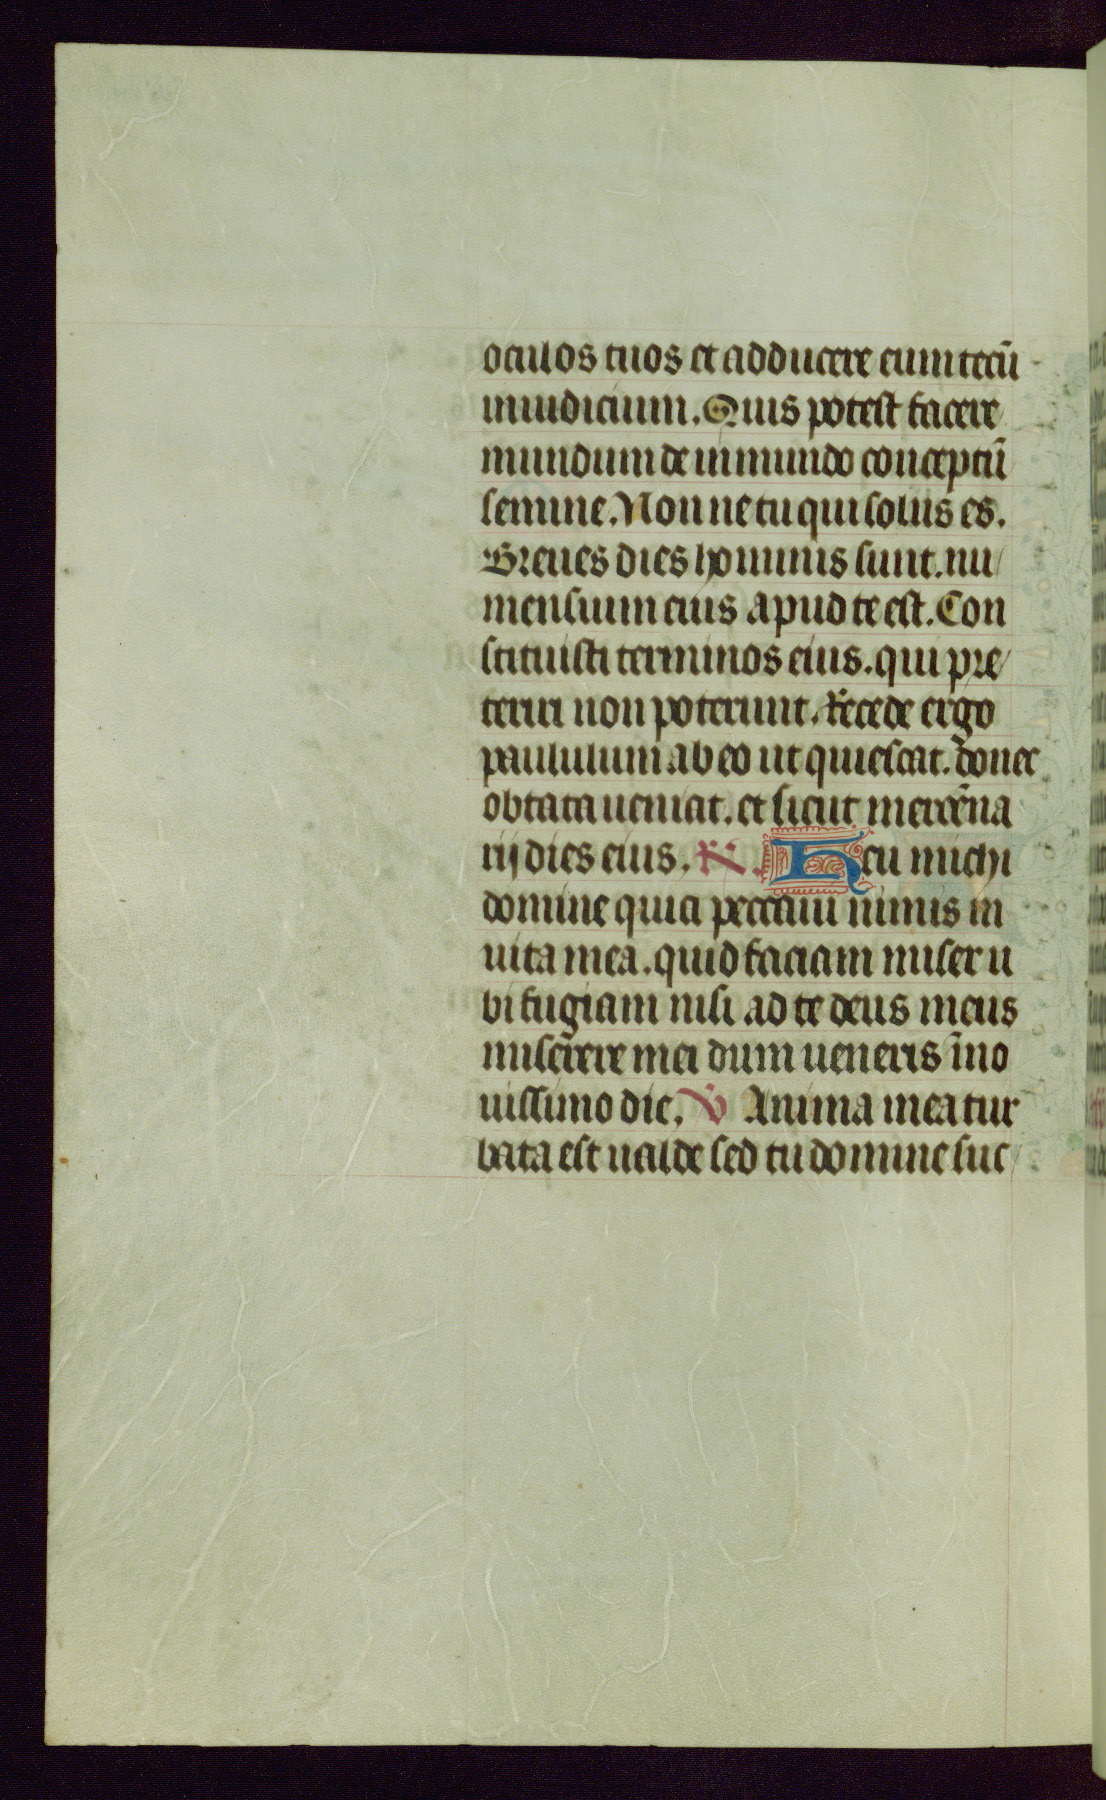 oculos tuos et adducere eum tecū
in iudicium. Quis potest facere
mundum de inmundo conceptū
semine. Nonne tu qui solus es.
Breues dies hominis sunt. nu
mensium eius apud te est. Con
stituisti terminos eius. qui pre
teriri non poterunt. Recede ergo
paululum ab eo ut quiescat. donec
obtata ueniat. et sicut mercēna
rij dies eius. R. Heu michi
domine quia peccaui nimis in
uita mea. quid faciam miser u
bi fugiam nisi ad te deus meus
miserere mei dum ueneris ī no
uissimo die. V Anima mea tur
bata est ualde sed tu domine suc